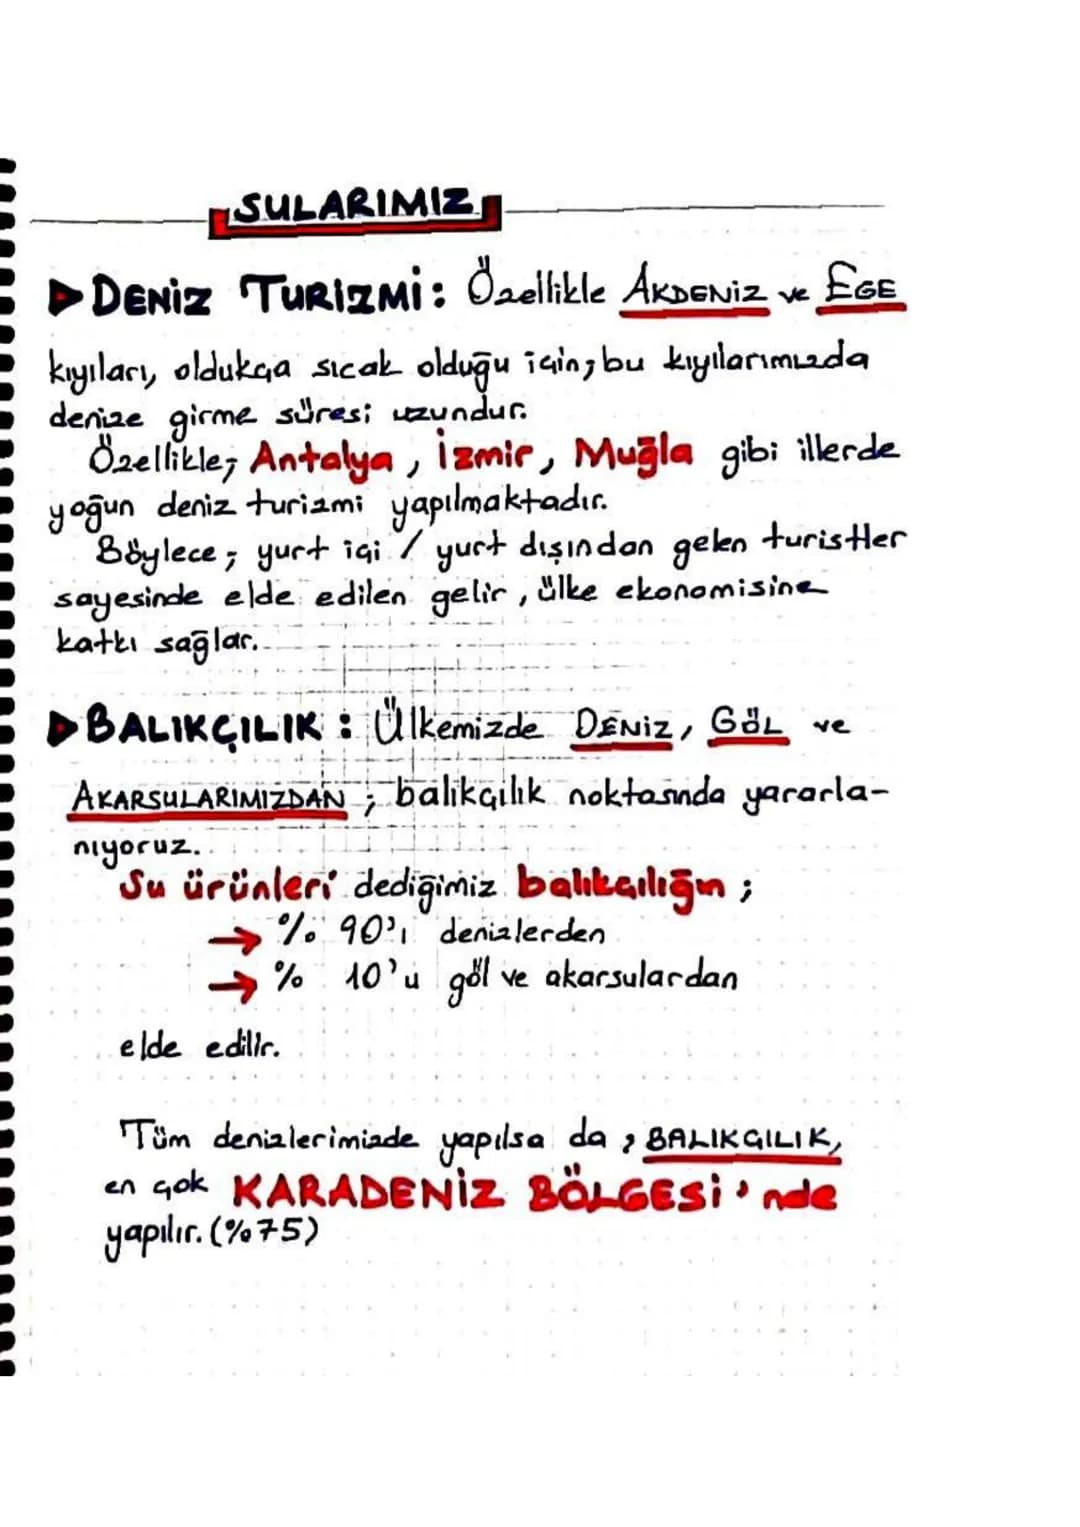 SULARIMIZ
▶DENİZ TURİZMİ: Özellikle AKDENİZ ve EGE
kıyıları, oldukça sıcak olduğu için; bu kıyılarımızda
denize girme süresi uzundur.
Özellikle; Antalya, İzmir, Muğla gibi illerde
yoğun deniz turizmi yapılmaktadır.
Böylece; yurt içi / yurt dışından gelen turistler
sayesinde elde edilen gelir, ülke ekonomisine
katkı sağlar.
▶BALIKÇILIK: Ülkemizde DENİZ, GÖL ve
AKARSULARIMIZDAN; balıkçılık noktasında yararla-
nıyoruz.
Su ürünleri dediğimiz balıkçılığın;
→ % 90'ı denizlerden
→ % 10'u göl ve akarsulardan
elde edilir.
Tüm denizlerimizde yapılsa da, BALIKÇILIK,
en çok KARADENİZ BÖLGESİ'nde
yapılır. (%75)